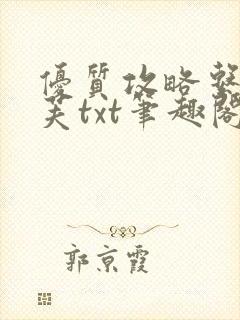 優質攻略整
芙txt筆趣閣
郭京霞